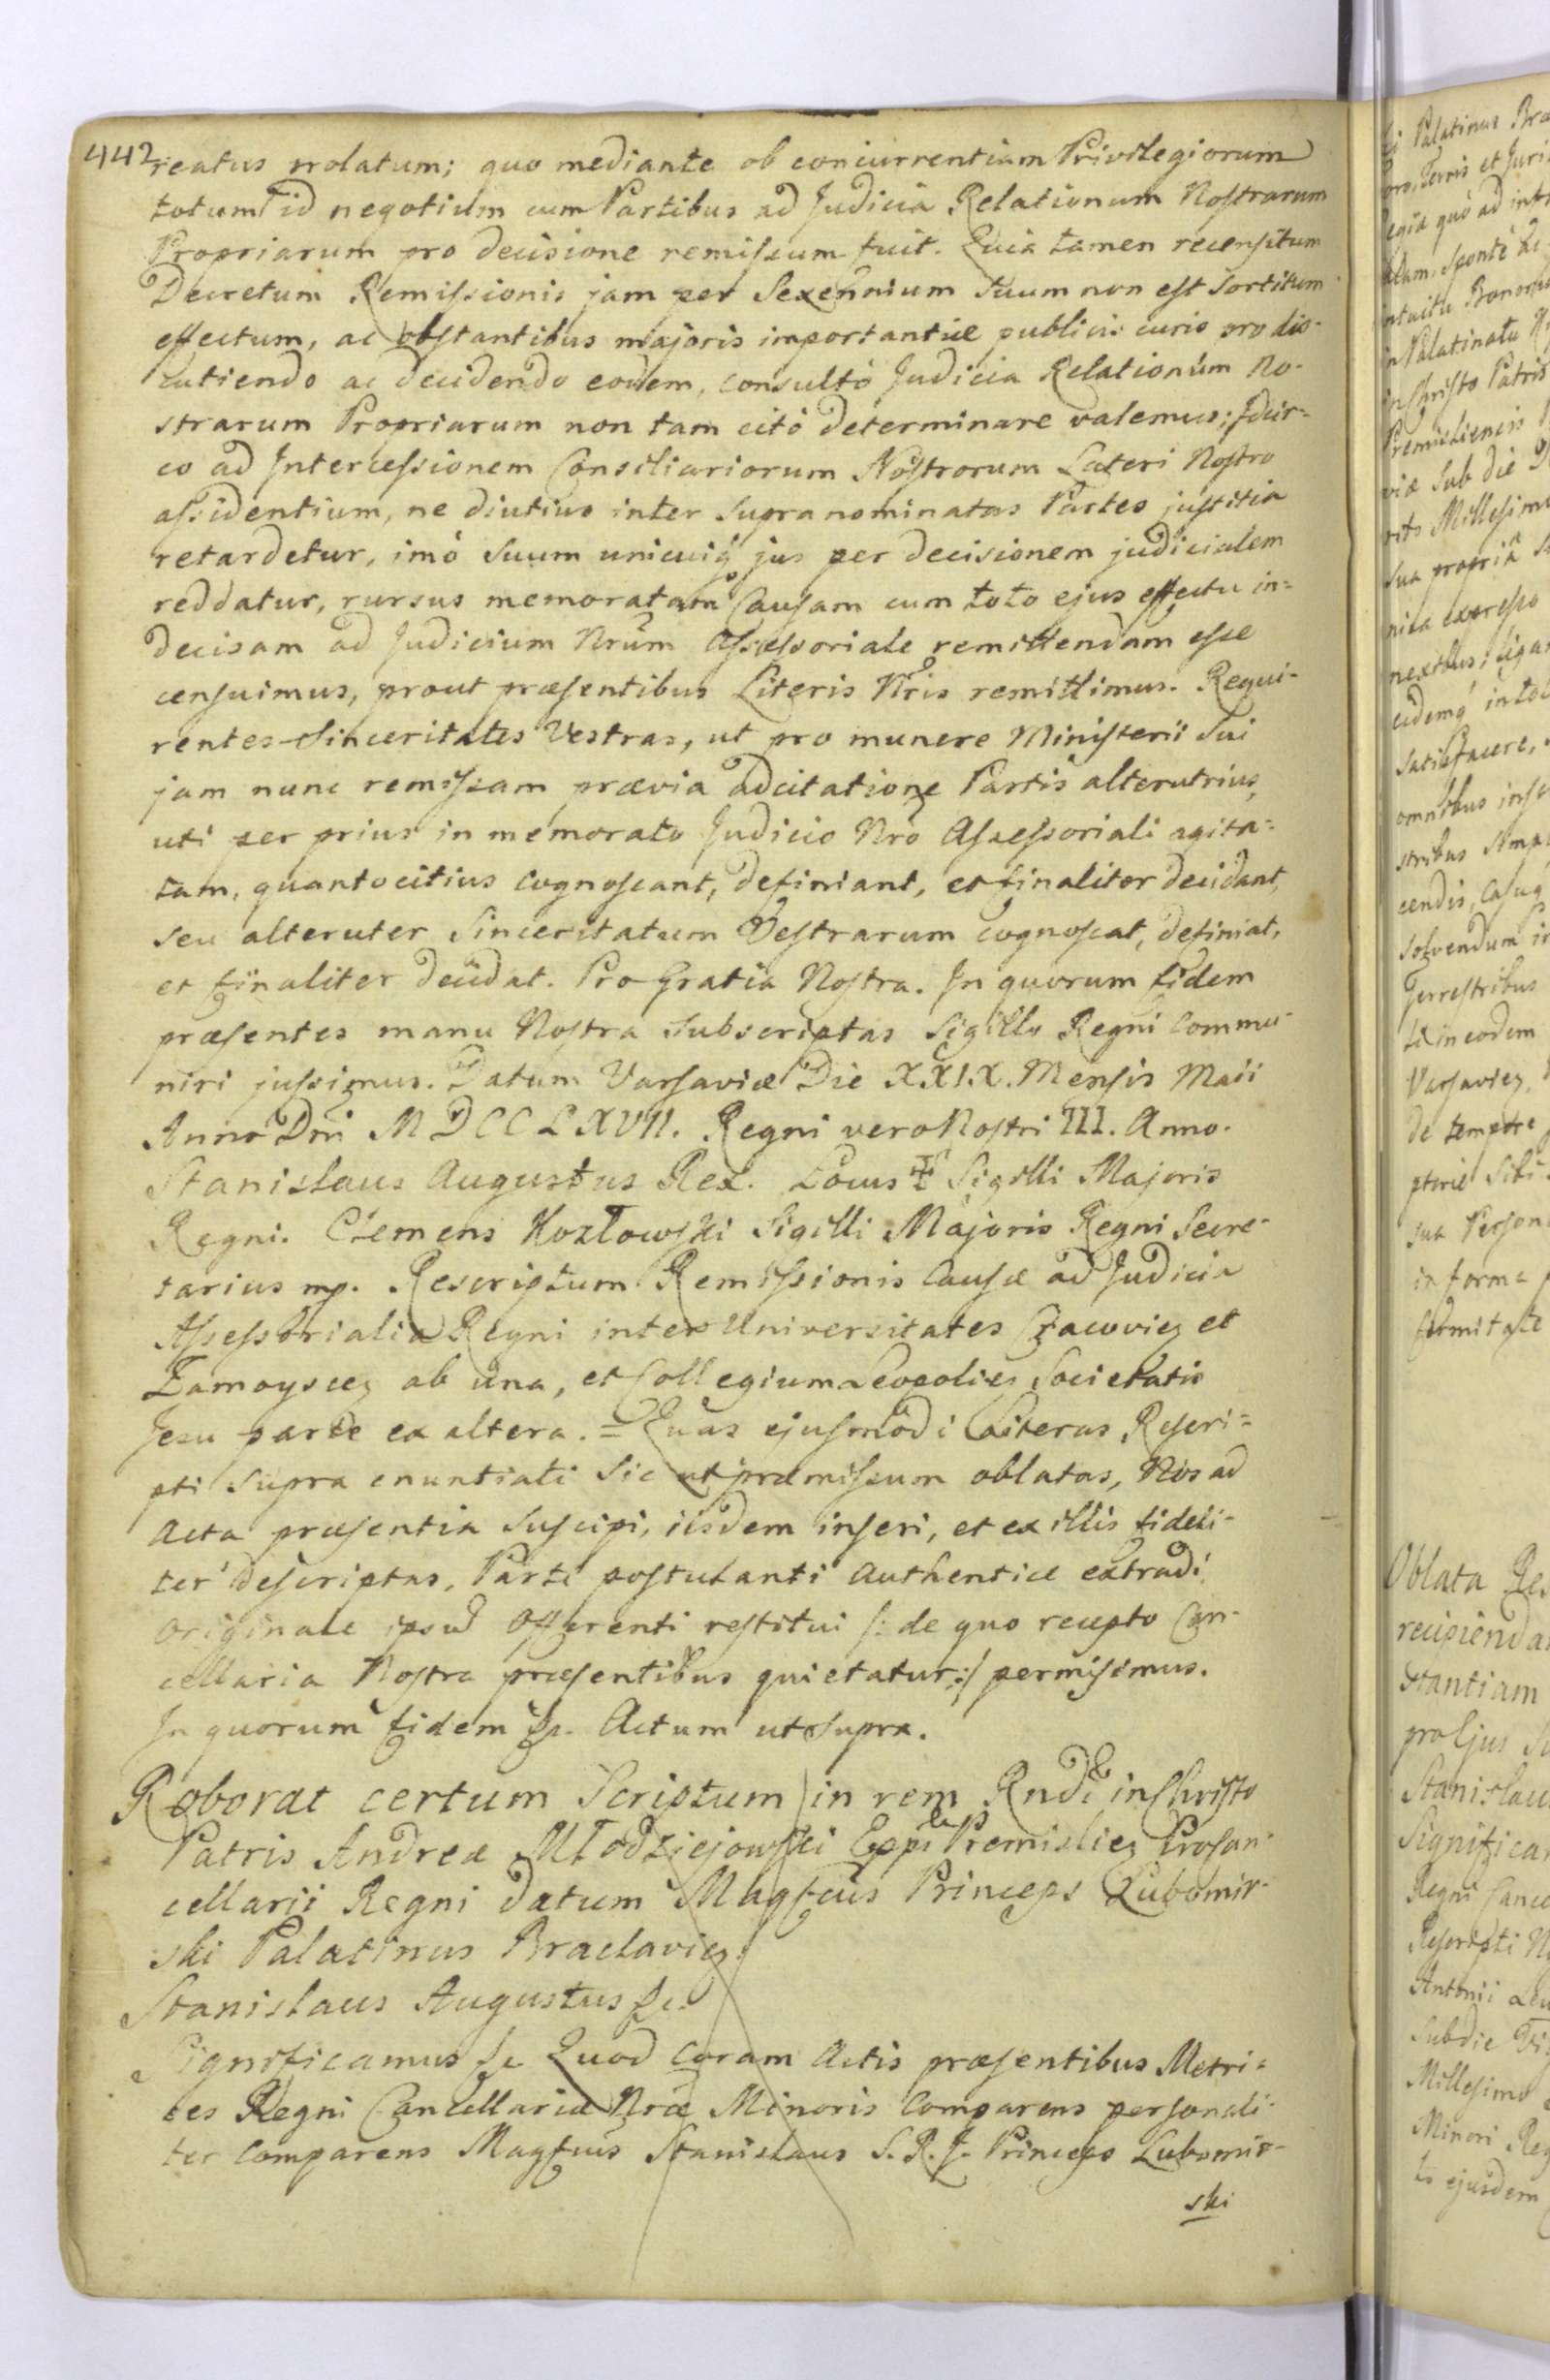 442
reatus prolatum; quo mediante ob concurrentiam Privilegiorum
totum id negotium cum Partibus ad Judicia Relationum Nostrarum
Propriarum pro decisione remissum fuit. Quia tamen recensitum
Decretum Remissionis jam per Sexennium suum non est sortitum
effectum, ac obstantibus majoris importantiæ publicis curis pro dis-
cutiendo ac decidendo eodem, consultò Judicia Relationum No-
strarum Propriarum non tam citò determinare valemus; Idcir=
co ad Intercessionem Consiliariorum Nostrorum Lateri Nostro
assidentium, ne diutius inter supranominatas Partes justitia
retardetur, imò suum unicuiq jus per decisionem judicialem
reddatur, rursus memoratam Causam cum toto ejus effectu in=
decisam ad Judicium Nrum Assessoriale remittendam esse
censuimus, prout præsentibus Literis Nris remittimus. Requi-
rentes Sinceritates Vestras, ut pro munere Ministerii Sui
jam nunc remissam prævia adcitatione Partis alterutrius,
uti per prius in memorato Judicio Nro Assessoriali agita=
tam, quantocitius cognoscant, definiant, et finaliter decidant,
seu alteruter Sinceritatum Vestrarum cognoscat, definiat,
et finaliter decidat. Pro Gratia Nostra. In quorum fidem
præsentes manu Nostra subscriptas Sigillo Regni commu-
niri jussimus. Datum Varsaviæ Die XXIX. Mensis Maii
Anno Dni MDCCLXVII. Regni vero Nostri III. Anno.
Stanislaus Augustus Rex. Locus Sigilli Majoris
Regni. Clemens Kozłowski Sigilli Majoris Regni Secre-
tarius mp. Rescriptum Remissionis Causæ ad Judicia
Assessorialia Regni inter Universitates Cracovien et
Zamoyscen ab una, et Collegium Leopolien Societatis
Jesu parte ex altera. = Quas ejusmodi Literas Rescri=
pti supra enuntiati sic ut præmissum oblatas, Nos ad
Acta præsentia suscipi, iisdem inseri, et ex illis fideli-
ter descriptas, Parti postulanti authentice extradi
Originale ipsud Offerenti restitui /: de quo recepto Can-
cellaria Nostra præsentibus quietatur :/ permisimus.
In quorum fidem &c. Actum ut supra.
Roborat certum Scriptum in rem Rndi in Christo
Patris Andreæ Młodziejowski Eppi Premislien Procan-
cellarii Regni datum Magfcus Princeps Lubomir-
ski Palatinus Braclavien
Stanislaus Augustus &c.
Significamus &c Quod coram Actis præsentibus Metri=
ces Regni Cancellariæ Nræ Minoris Comparens personali-
ter comparens Magfcus Stanislaus S.R.J. Princeps Lubomir-
ski
Palatinus
Terris et
quò ad
sponte
intuitu
Palatinatu
in Christo Patris
sub die
Millesimo
sua propria
expresso
satisfacere,
omnibus
solvendum
Terrestribus
in eodem
Varsavien
de tempore
sua
in forma
Oblata
recipienda
stantiam
pro Ejus
Stanislaus
Significa
Regni
Rescripti
Antonii
sub die
Millesimo
Minori
ejusdem